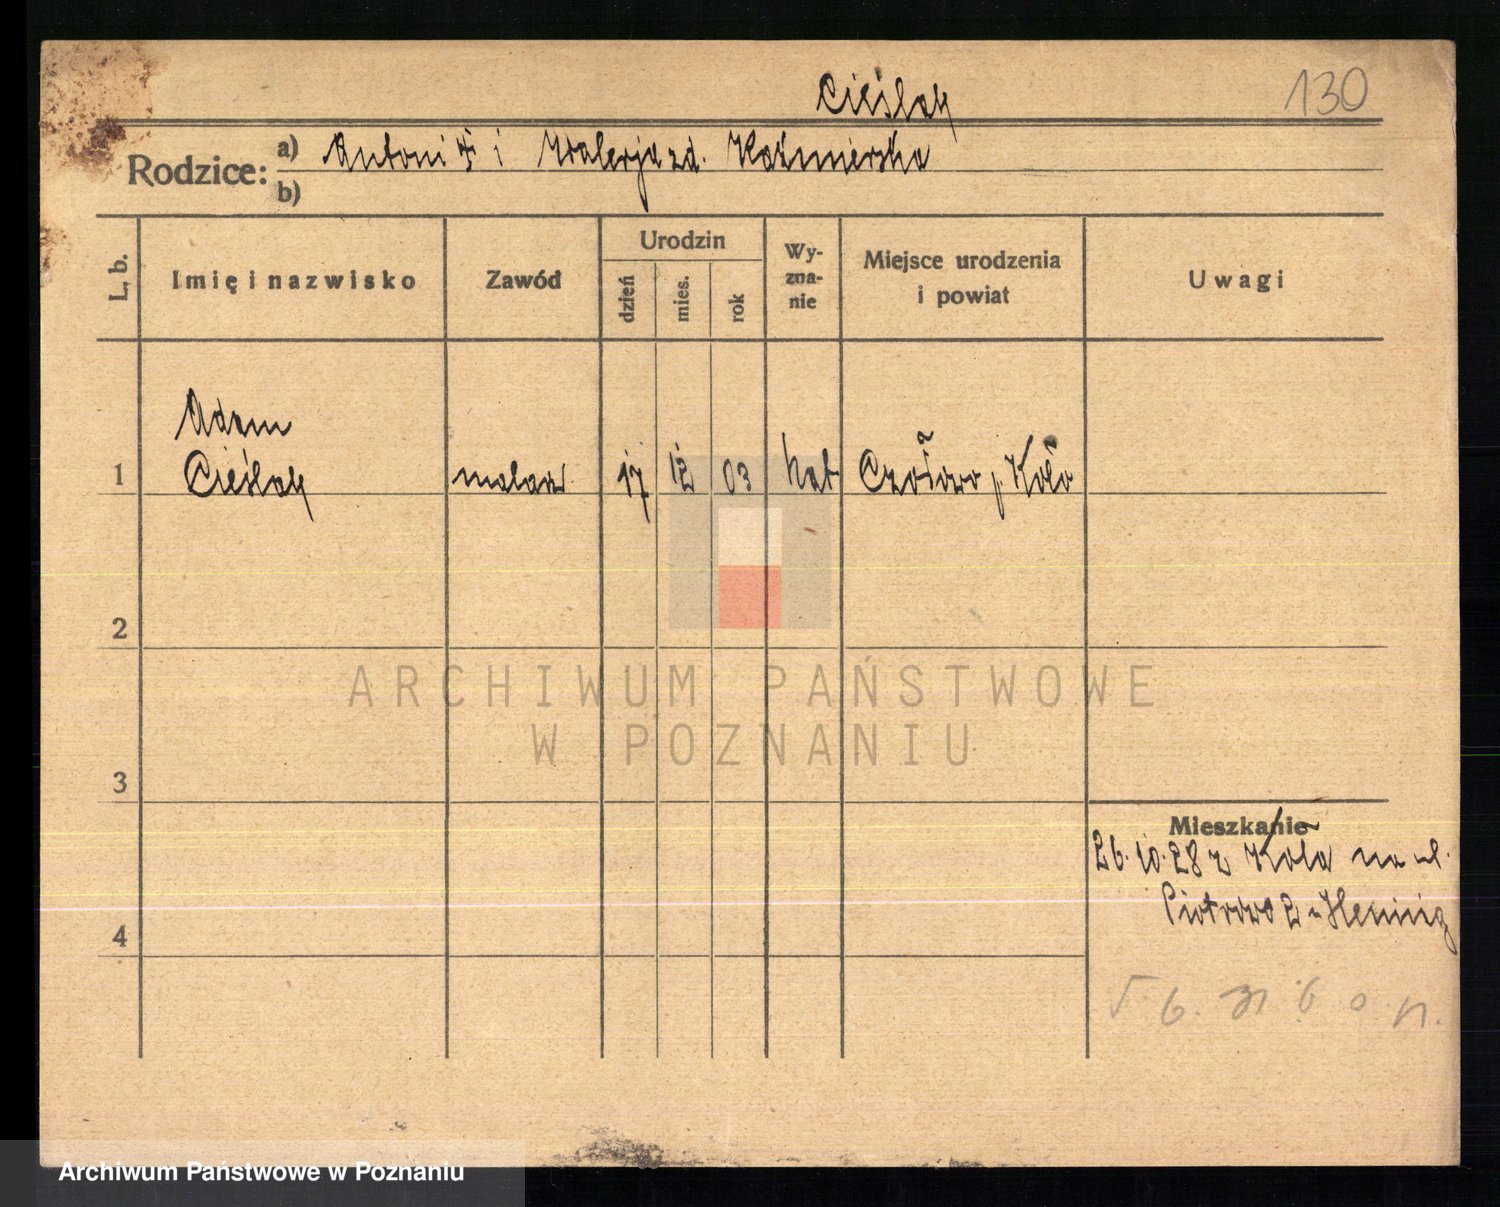 Cieślak
130
Rodzice:
a) Antoni i Walerja zd. Kaźmierska
b)
L. b.
Imię i nazwisko
Zawód
Urodzin
dzień
mies.
rok
Wy-
zna-
nie
Miejsce urodzenia
i powiat
Uwagi
Adam
1 Cieślak malarz 17 12 03 kat Koło
2
ARCHIWUM PAŃSTWOWE
W POZNANIU
3
Mieszkanie
26.10.28 z Koła na ul.
Piotrowo 2 u Hennig
4
Archiwum Państwowe w Poznaniu